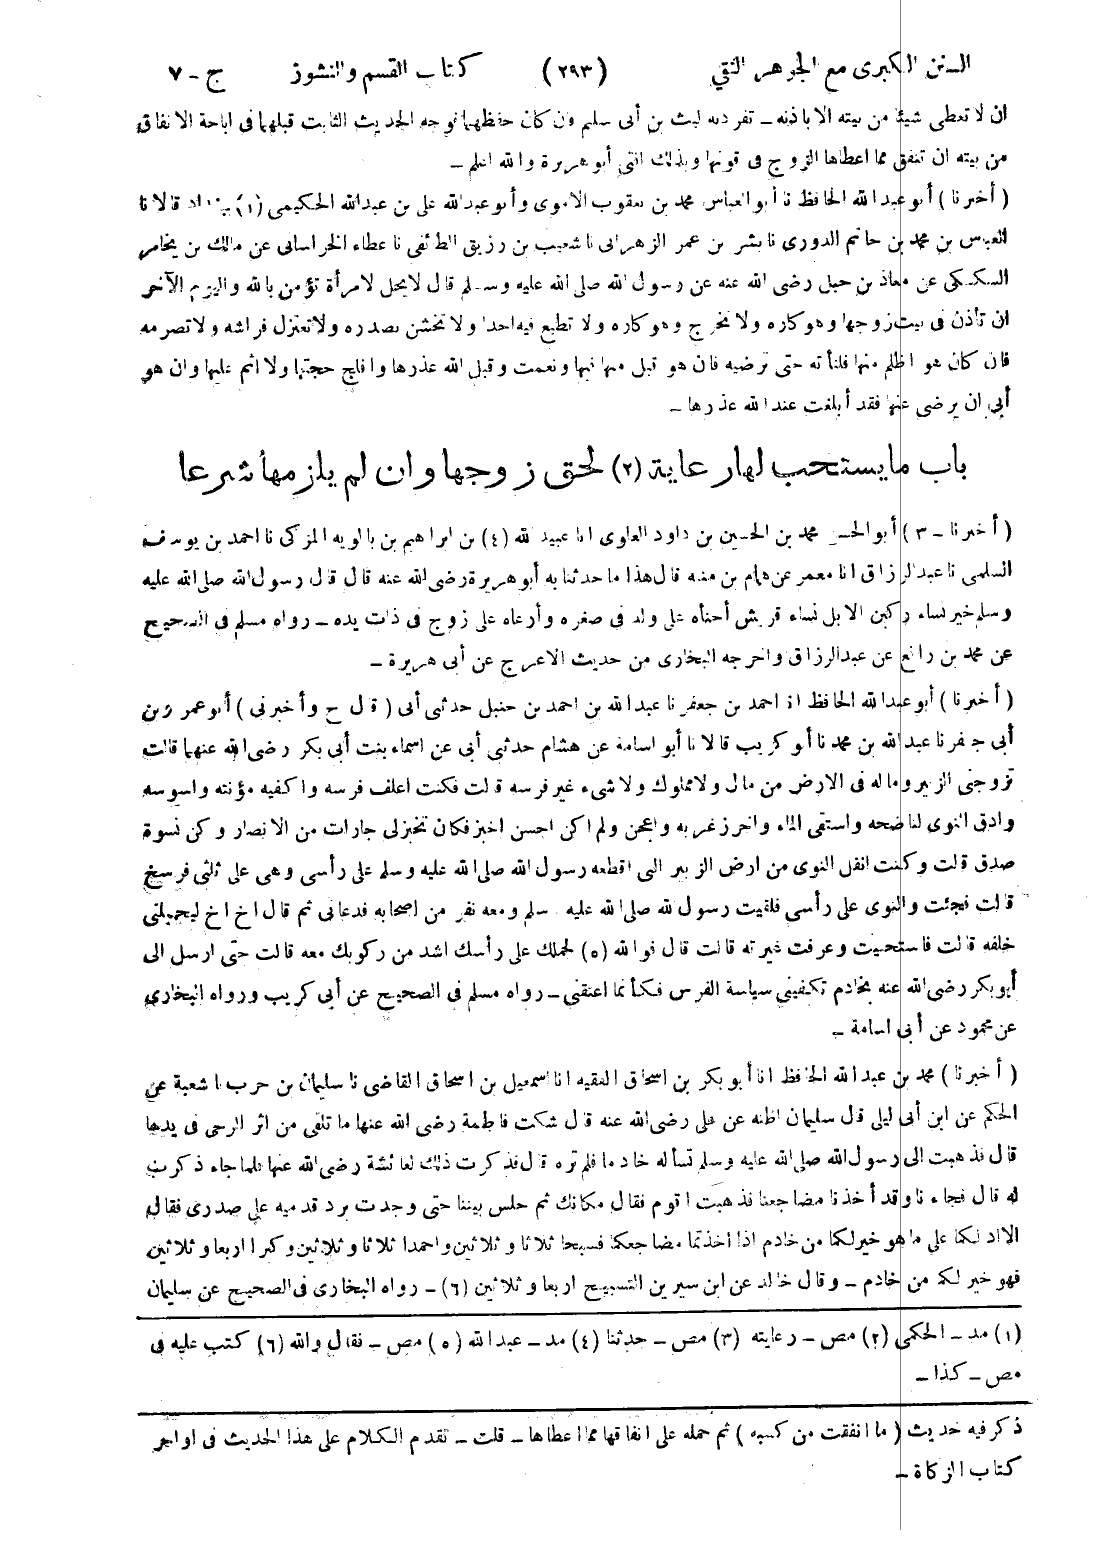 السنن الكبرى مع الجوهر النقي (٢٩٣) كتاب القسم والنشوز ج - ٧
ان لا تعطى شيئا من بيته الا باذنه - تفرد به ليث بن أبى سليم فان كان حفظهما فوجه الحديث الثابت قبلهما فى اباحة الانفاق
من بيته ان تنفق مما اعطاها الزوج فى قوتها وبذلك افتى أبو هريرة والله اعلم -
( أخبرنا ) أبو عبد الله الحافظ نا أبو العباس محمد بن يعقوب الاموى وأبو عبد الله على بن عبد الله الحكيمى (١) ببغداد قالا نا
العباس بن محمد بن حاتم الدورى نا بشر بن عمر الزهرانى نا شعيب بن رزيق الطائفى نا عطاء الخراسانى عن مالك بن يخامر
السكسكى عن معاذ بن جبل رضى الله عنه عن رسول الله صلى الله عليه وسلم قال لا يحل لامرأة تؤمن بالله واليوم الآخر
ان تأذن فى بيت زوجها وهو كاره ولا تخرج وهو كاره ولا تطيع فيه احدا ولا تخشن بصدره ولا تعتزل فراشه ولا تصرمه
فان كان هو اظلم منها فلتأته حتى ترضيه فان هو قبل منها فبها ونعمت وقبل الله عذرها وافلج حجتها ولا اثم عليها وان هو
أبى ان يرضى عنها فقد أبلغت عند الله عذرها -
باب ما يستحب لها رعاية (٢) لحق زوجها وان لم يلزمها شرعا
( أخبرنا - ٣ ) أبو الحسن محمد بن الحسين بن داود العلوى انا عبيد الله (٤) بن ابراهيم بن بالويه المزكى نا احمد بن يوسف
السلمى نا عبد الرزاق انا معمر عن همام بن منبه قال هذا ما حدثنا به أبو هريرة رضى الله عنه قال قال رسول الله صلى الله عليه
وسلم خير نساء ركبن الابل نساء قريش أحناه على ولد فى صغره وأرعاه على زوج فى ذات يده - رواه مسلم فى الصحيح
عن محمد بن رافع عن عبد الرزاق واخرجه البخارى من حديث الاعرج عن أبى هريرة -
( أخبرنا ) أبو عبد الله الحافظ انا احمد بن جعفر نا عبد الله بن احمد بن حنبل حدثنى أبى ( قال ح وأخبرنى ) أبو عمرو بن
أبى جعفر نا عبد الله بن محمد نا أبو كريب قالا نا أبو اسامة عن هشام حدثنى أبى عن اسماء بنت أبى بكر رضى الله عنهما قالت
تزوجنى الزبير وماله فى الارض من مال ولا مملوك ولا شىء غير فرسه قالت فكنت اعلف فرسه واكفيه مؤنته واسوسه
وادق النوى لناضحه واستقى الماء واخرز غربه واعجن ولم اكن احسن اخبز فكان تخبز لى جارات من الانصار وكن نسوة
صدق قالت وكنت انقل النوى من ارض الزبير التى اقطعه رسول الله صلى الله عليه وسلم على رأسى وهى على ثلثى فرسخ
قالت فجئت والنوى على رأسى فلقيت رسول الله صلى الله عليه وسلم ومعه نفر من اصحابه فدعانى ثم قال اخ اخ ليحملنى
خلفه قالت فاستحييت وعرفت غيرته قالت قال فوالله (٥) لحملك على رأسك اشد من ركوبك معه قالت حتى ارسل الى
أبو بكر رضى الله عنه بخادم تكفينى سياسة الفرس فكأنما اعتقنى - رواه مسلم فى الصحيح عن أبى كريب ورواه البخارى
عن محمود عن أبى اسامة -
( أخبرنا ) محمد بن عبد الله الحافظ انا أبو بكر بن اسحاق الفقيه انا اسمعيل بن اسحاق القاضى نا سليمان بن حرب نا شعبة عن
الحكم عن ابن أبى ليلى قال سليمان اظنه عن على رضى الله عنه قال شكت فاطمة رضى الله عنها ما تلقى من اثر الرحى فى يدها
قال فذهبت الى رسول الله صلى الله عليه وسلم تسأله خادما فلم تره قال فذكرت ذلك لعائشة رضى الله عنها فلما جاء ذكرت
له قال فجاءنا وقد أخذنا مضاجعنا فذهبت اقوم فقال مكانك ثم جلس بيننا حتى وجدت برد قدميه على صدرى فقال
الا ادلكما على ما هو خير لكما من خادم اذا اخذتما مضاجعكما فسبحا ثلاثا وثلاثين واحمدا ثلاثا وثلاثين وكبرا اربعا وثلاثين
فهو خير لكما من خادم - وقال خالد عن ابن سيرين التسبيح اربعا وثلاثين (٦) - رواه البخارى فى الصحيح عن سليمان
(١) مد - الحكمى (٢) مص - رعايته (٣) مص - حدثنا (٤) مد - عبد الله (٥) مص - فقال والله (٦) كتب عليه فى
مص - كذا -
ذكر فيه حديث ( ما انفقت من كسبه ) ثم حمله على انفاقها مما اعطاها - قلت - تقدم الكلام على هذا الحديث فى اواخر
كتاب الزكاة -